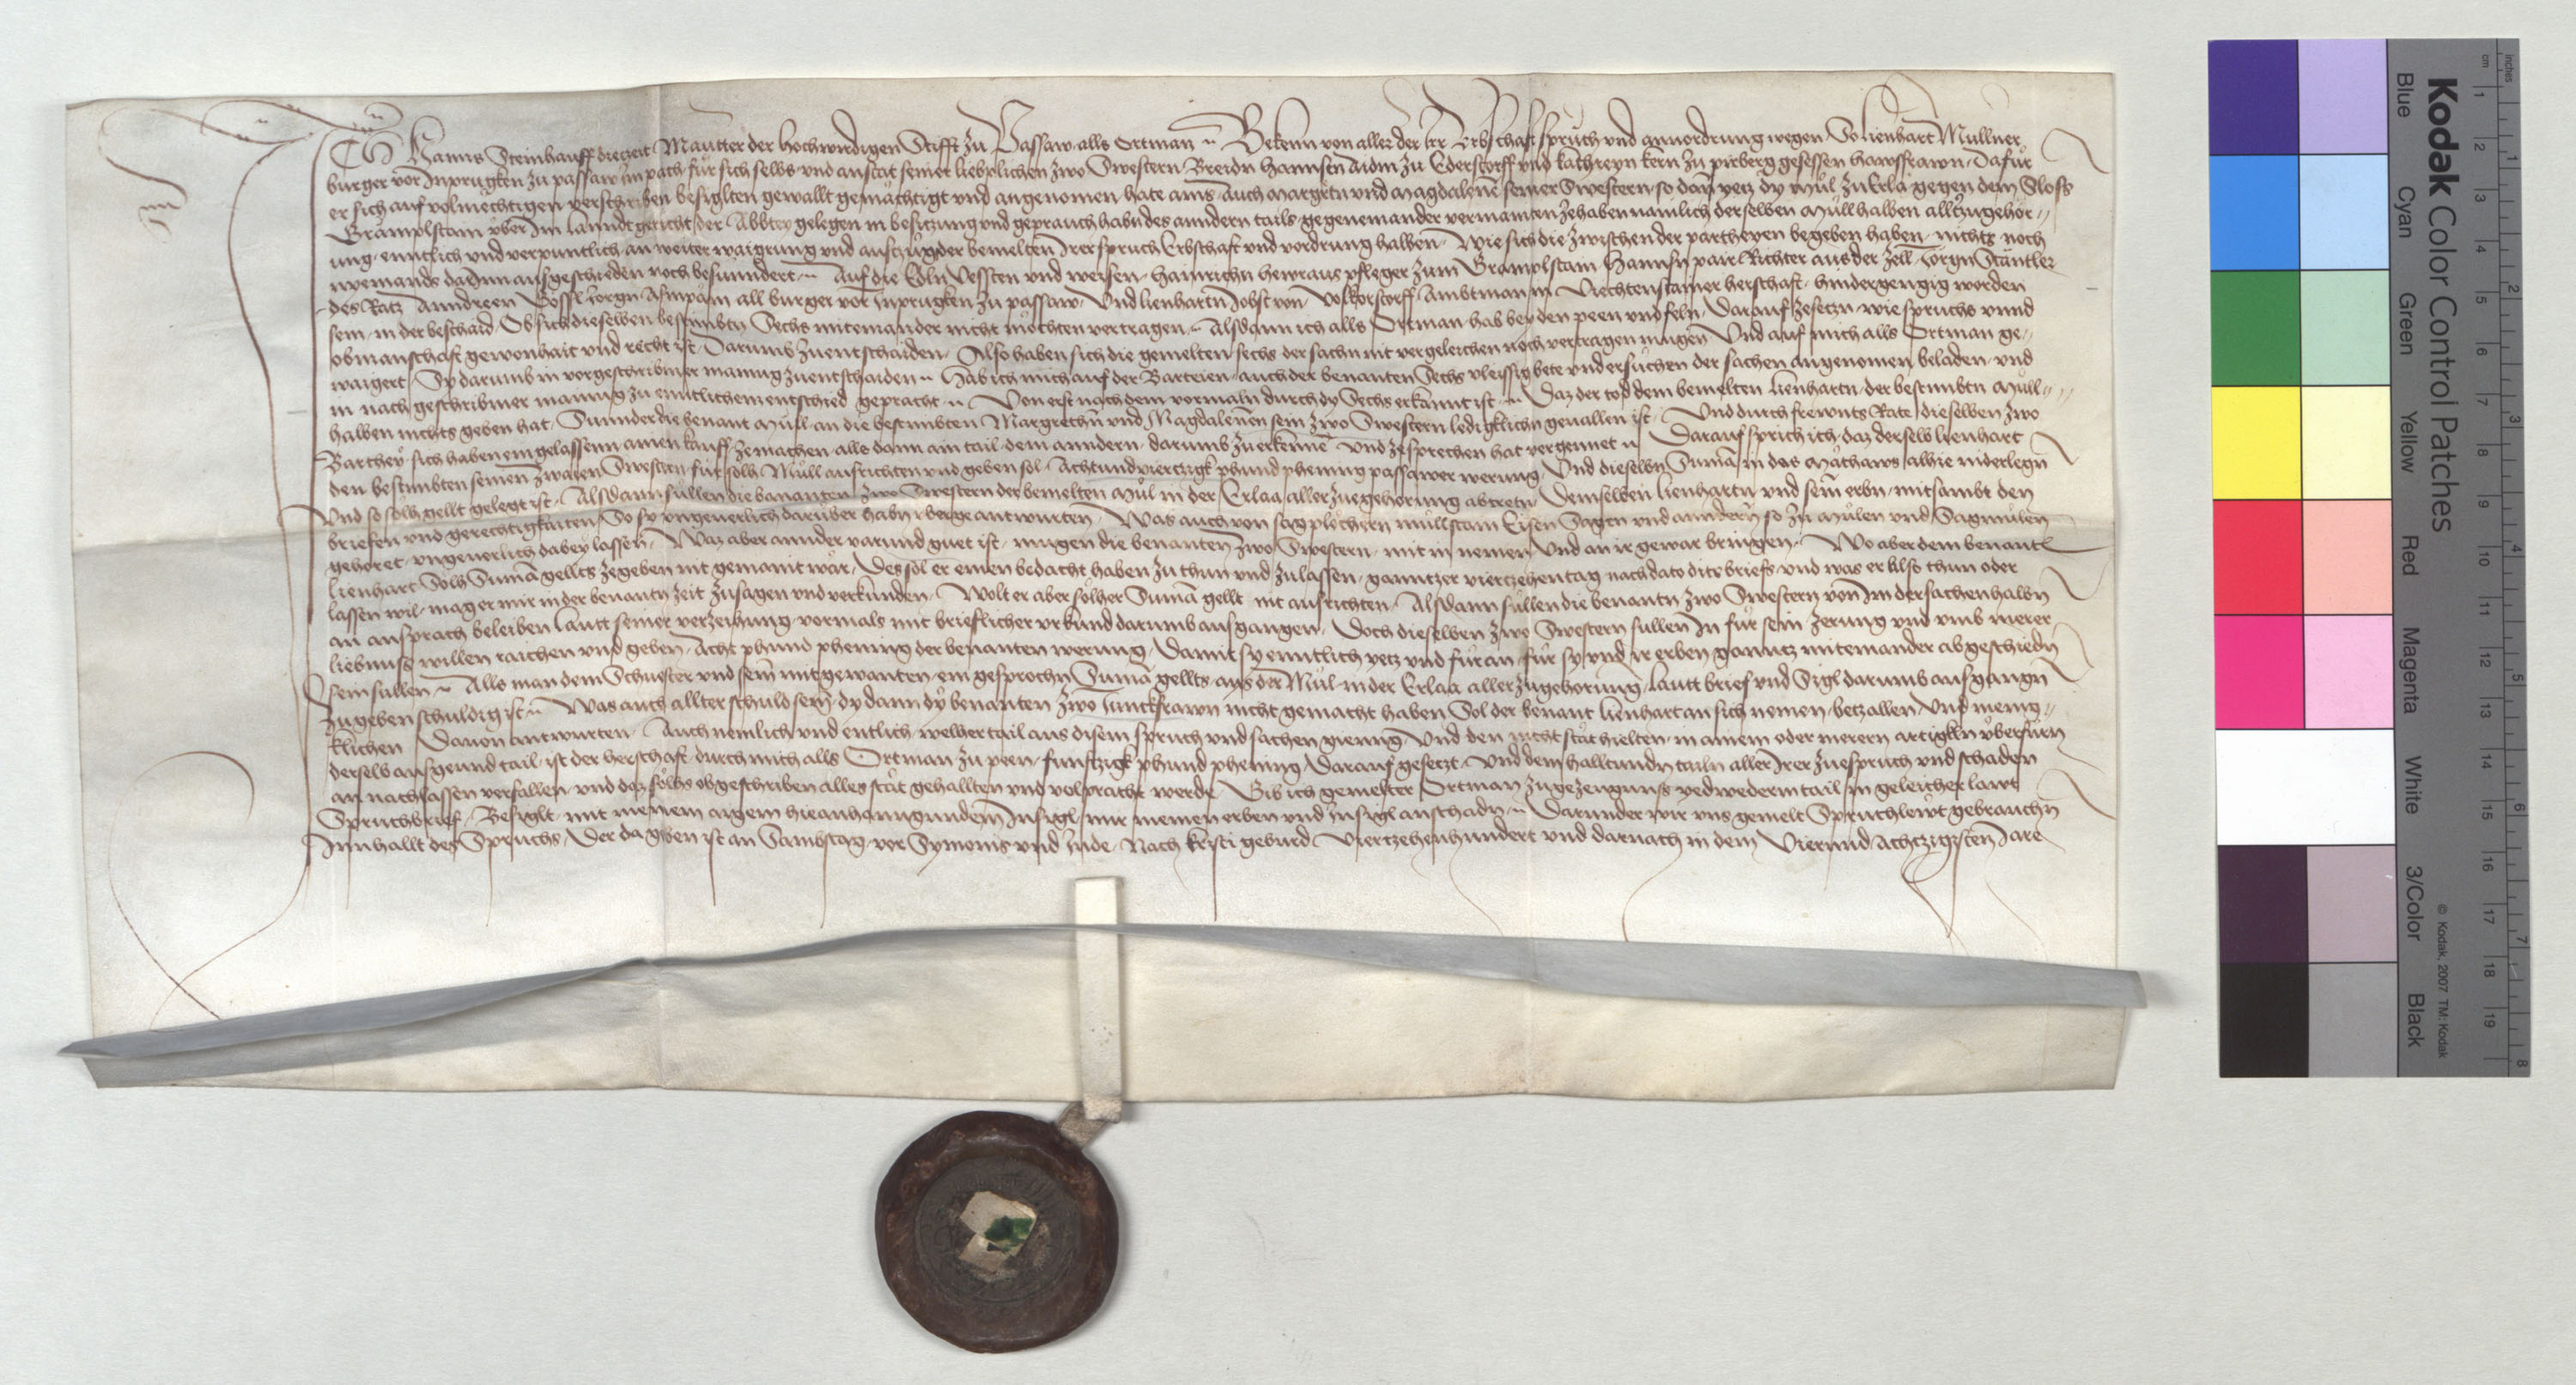 Ich Hanns Steinhauff diezeit Mautter der hochwirdigen Stifft zu Passaw alls Ortman Bekenn von aller der Irr Erbschaft spruch und anuordrung wegen So lienhart Mullner
burger vor Inprugken zu passaw im pach fur sich selbs und anstat seiner lieplichen zwo Swestern Hannsen zu Ederstorff und kathreyn kern zu pirberg gesessen hawsfrawn Dafur
er sich auf volmechtigen verschriben besiglten gewallt gemachtigt und angenomen hate ains Auch Margretn und Magdalenen seiner Swestern so dan yetz dy Mul zu Erla gegen dem Sloss
Gramplstain uber Im lanndtgericht der Abbtey gelegen in besitzung und geprauch habn des anndern tails gegeneinander vermainten zehaben namlich derselben Mull halben alltzugehor
ung enntlich und verpuntlich an weiter waigrung und aufzug der bemelten Irer spruch Erbschaft und vordrung halben Wie sich die zwischen der partheyen begeben haben nichts noch
nyemands darInn ausgeschieden noch besunndert Auf die Edln Vessten und weisen Hainrichn pfleger zum Gramplstain Hannsn pairl Richter aus der Zell Jorgn Stantler
des Ratz Anndreen Jorgn all burger vor Inprugken zu passaw Und lienhartn Jobst von Volkorstorff Ambtman in Viechtenstainer herschaft hindergengig worden
sein in der beschaid Ob sich dieselben bestimbtn Sechs miteinander nicht mochten vertragen Alsdann ich alls Ortman hab bey den peen und feln Darauf zesetzn wie spruchs unnd
obmanschaft gewonhait und recht ist Darumb zuentschaiden Also haben sich die gemelten sechs der sachn nit vergeleichen noch vertragen mugen Und auf mich alls Ortman ge
waigert Sy darumb in vorgeschribner mainung zuentschaiden Hab ich mich auf der Parteien auch der benanten Sechs vleissig bete undersuchen der sachen angenomen beladen und
in nachgeschribner mainung zu enntlichem entschied gepracht Von erst nachdem vormaln durch dy Sechs erkannt ist Daz der tod dem bemelten lienhartn der bestimbtn Mull
halben nichts geben hat Sunnder die benant Mull an die bestimbten Margrethn und Magdalenen sein zwo Swestern ledigklichn geuallen ist Und durch frewnts Rate dieselben zwo
Parthey sich haben eingelassen ainen kauff zemachen alls dann ain tail dem anndern darumb zuerkenne und zesprechen hat vergennet Darauf sprich ich daz derselb lienhart
den bestimbten seinen zwaien Swestern fur solh Mull ausrichten und geben sol Achtundvierzigk phund phening passawer werung Und dieselbn Suma in das Mathaws alhie niderlegn
Und so solh gellt gelegt ist Alsdann sullen die benanten zwo Swestern der bemelten Mul in der Erlaa aller zuegehorung abtretn Demselben lienhartn und sein erbn mitsambt den
briefen und gerechtigkaiten So sy ungeuerlich daruber habn ubergeantwurten Was auch von sagplochern mullstain Eisen Sagen und anndern so zu Mulen und Sagmulen
gehoret ungeuerlich dabey lassen Waz aber annder varund guet ist mugen die benanten zwo Swestern mit in nemen Und an ir gewar bringen Wo aber dem benante
lienhart Solh Suma gellts zegeben nit gemaint war Des sol er einen bedacht haben zu thun und zulassen ganntzer viertzehen tag nach dato ditz briefs und was er also thun oder
lassen wil mag er mir in der benantn zeit zusagen und verkunden Wolt er aber solher Suma gellt nit ausrichten Alsdann sullen die benantn zwo Swestern von Im der sachenhalbn
an ansprach beleiben lautt seiner verzeihung vormals mit brieflicher urkund darumb ausgangen Doch dieselben zwo Swestern sullen In fur sein zerung und umb merer
liebnuss willen raichen und geben Acht phund phening der benanten werung Damit sy enntlich yetz und furan fur sy und ir erben ganntz miteinander abgeschiedn
sein sullen Alls man dem Schuster und sein mitgewanten ein gesprochn Suma gellts aus der Mul in der Erlaa aller zugehorung lautt brief und Sigl darumb ausgangn
zu geben schuldig ist Was auch allter schuld sein dy dann dy benanten zwo Junckfrawn nicht gemacht haben Sol der benant lienhart an sich nemen betzallen Und menig
klichen Dauon antwurten Auch nemlich und entlich welher tail aus disem spruch und sachen gienng Und den nicht stat hielten in ainem oder merern artigkln uberfurn
derselb ausgeund tail ist der herschaft durch mich alls Ortman zu peen funftzigk phund phening Darauf gesetzt Und dem halltundn tailn aller Irer zuespruch und schaden
an nachlassen verfallen und daz solhs obgeschriben alles stat gehallten und volpracht werde Gib ich gemelter Ortman zu gezeugnuss yedwederm tail in geleicher lawt
Spruchbrief Besiglt mit meinem aigem hieanhanngundem Insigl mir meinen erben und Insigl anschadn Darunder wir uns gemelt Spruchlewt gebrauchn
Innhallt des Spruchs Der da geben ist an Sambstag vor Symonis und Jude Nach kristi geburd Viertzehenhundert und darnach in dem Vierundachtzigisten Jare
Kodak Color Control Patches
Blue Cyan Green Yellow Red Magenta White 3/Color Black
© Kodak, 2007 TM: Kodak
cm 1 2 3 4 5 6 7 8 9 10 11 12 13 14 15 16 17 18 19
inches 1 2 3 4 5 6 7 8